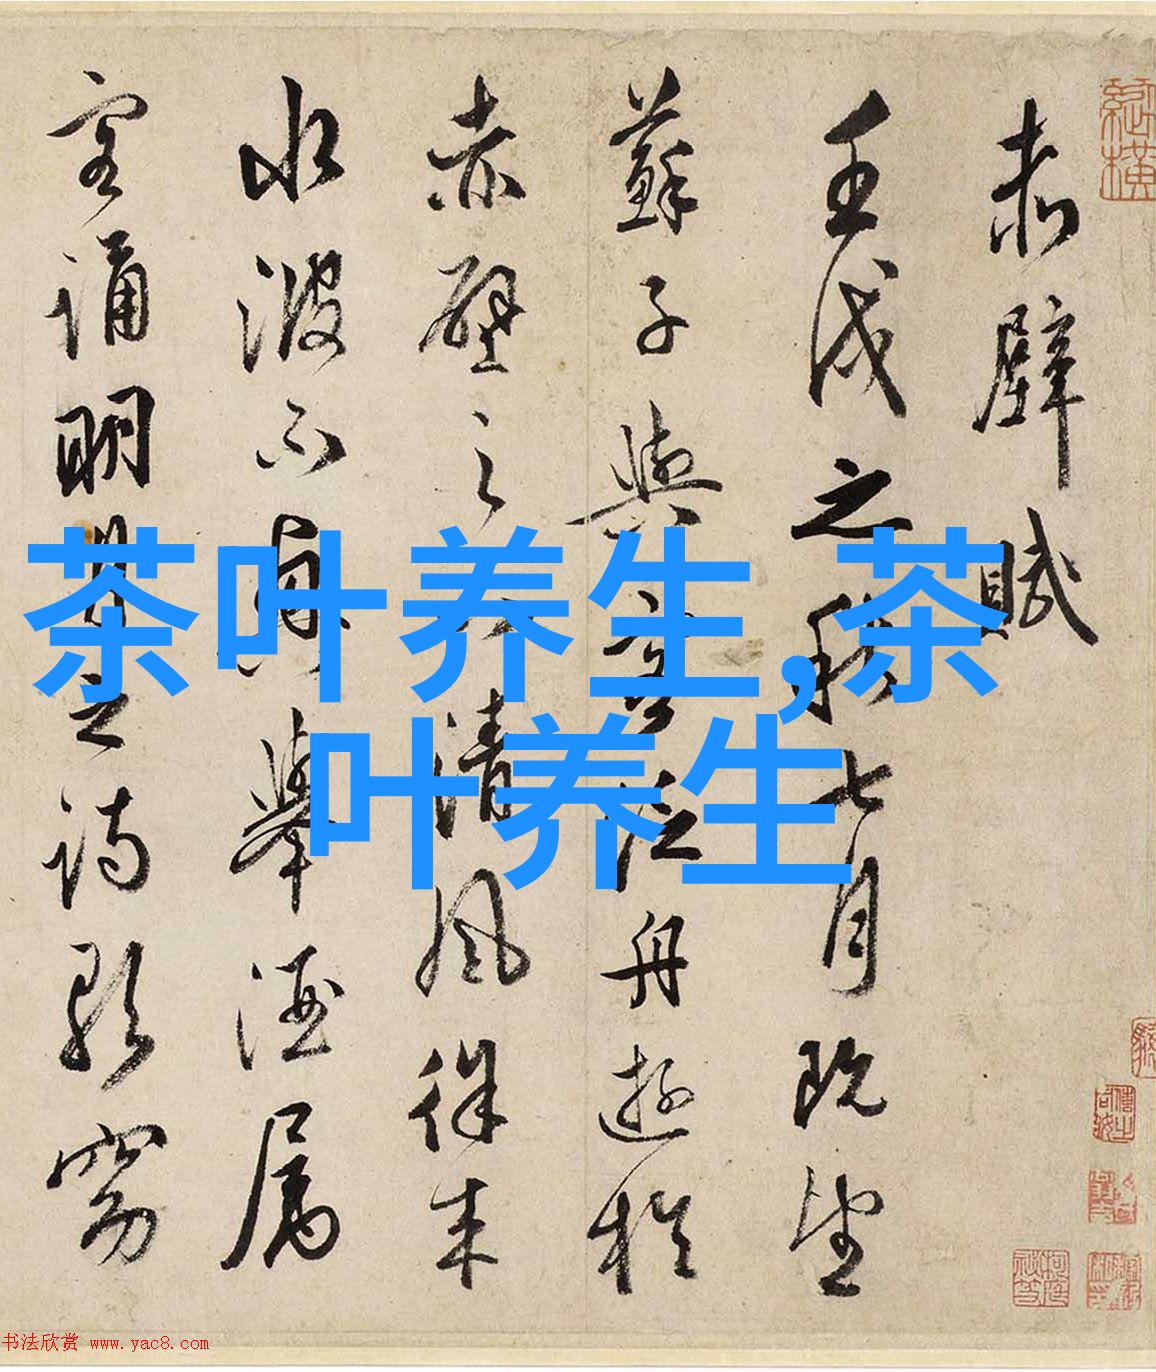 赤壁賦
壬戌之秋七月既望
蘇子與客泛舟遊於
赤壁之下清風徐來
水波不興舉酒屬
客誦明月之詩歌窈
茶叶养生,茶
叶养生
书法欣赏 www.yac8.com